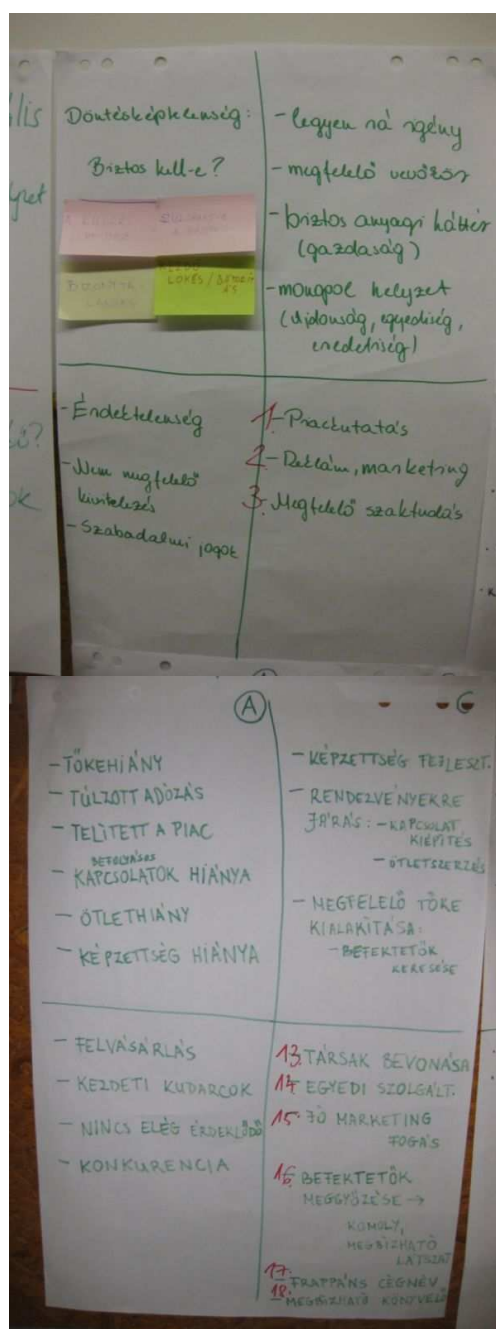 lis
Döntésképtelenség:
Biztos kell-e?
LÖKÉS /
- legyen rá igény
- megfelelő vevőkör
- biztos anyagi háttér
(gazdaság)
- monopol helyzet
(újdonság, egyediség,
eredetiség)
- Érdektelenség
- Nem megfelelő
kivitelezés
- Szabadalmi jogok
1. - Piackutatás
2. - Reklám, marketing
3. - Megfelelő szaktudás
A
- TŐKEHIÁNY
- TÚLZOTT ADÓZÁS
- TELÍTETT A PIAC
BEFOLYÁSOS
- KAPCSOLATOK HIÁNYA
- ÖTLETHIÁNY
- KÉPZETTSÉG HIÁNYA
- KÉPZETTSÉG FEJLESZT.
- RENDEZVÉNYEKRE
JÁRÁS: - KAPCSOLAT
KIÉPÍTÉS
- ÖTLETSZERZÉS
- MEGFELELŐ TŐKE
KIALAKÍTÁSA:
- BEFEKTETŐK
KERESÉSE
- FELVÁSÁRLÁS
- KEZDETI KUDARCOK
- NINCS ELÉG ÉRDEKLŐDŐ
- KONKURENCIA
13. TÁRSAK BEVONÁSA
14. EGYEDI SZOLGÁLT.
15. JÓ MARKETING
FOGÁS
16. BEFEKTETŐK
MEGGYŐZÉSE →
KOMOLY,
MEGBÍZHATÓ
LÁTSZAT
17. FRAPPÁNS CÉGNÉV
18. MEGBÍZHATÓ KÖNYVELŐ